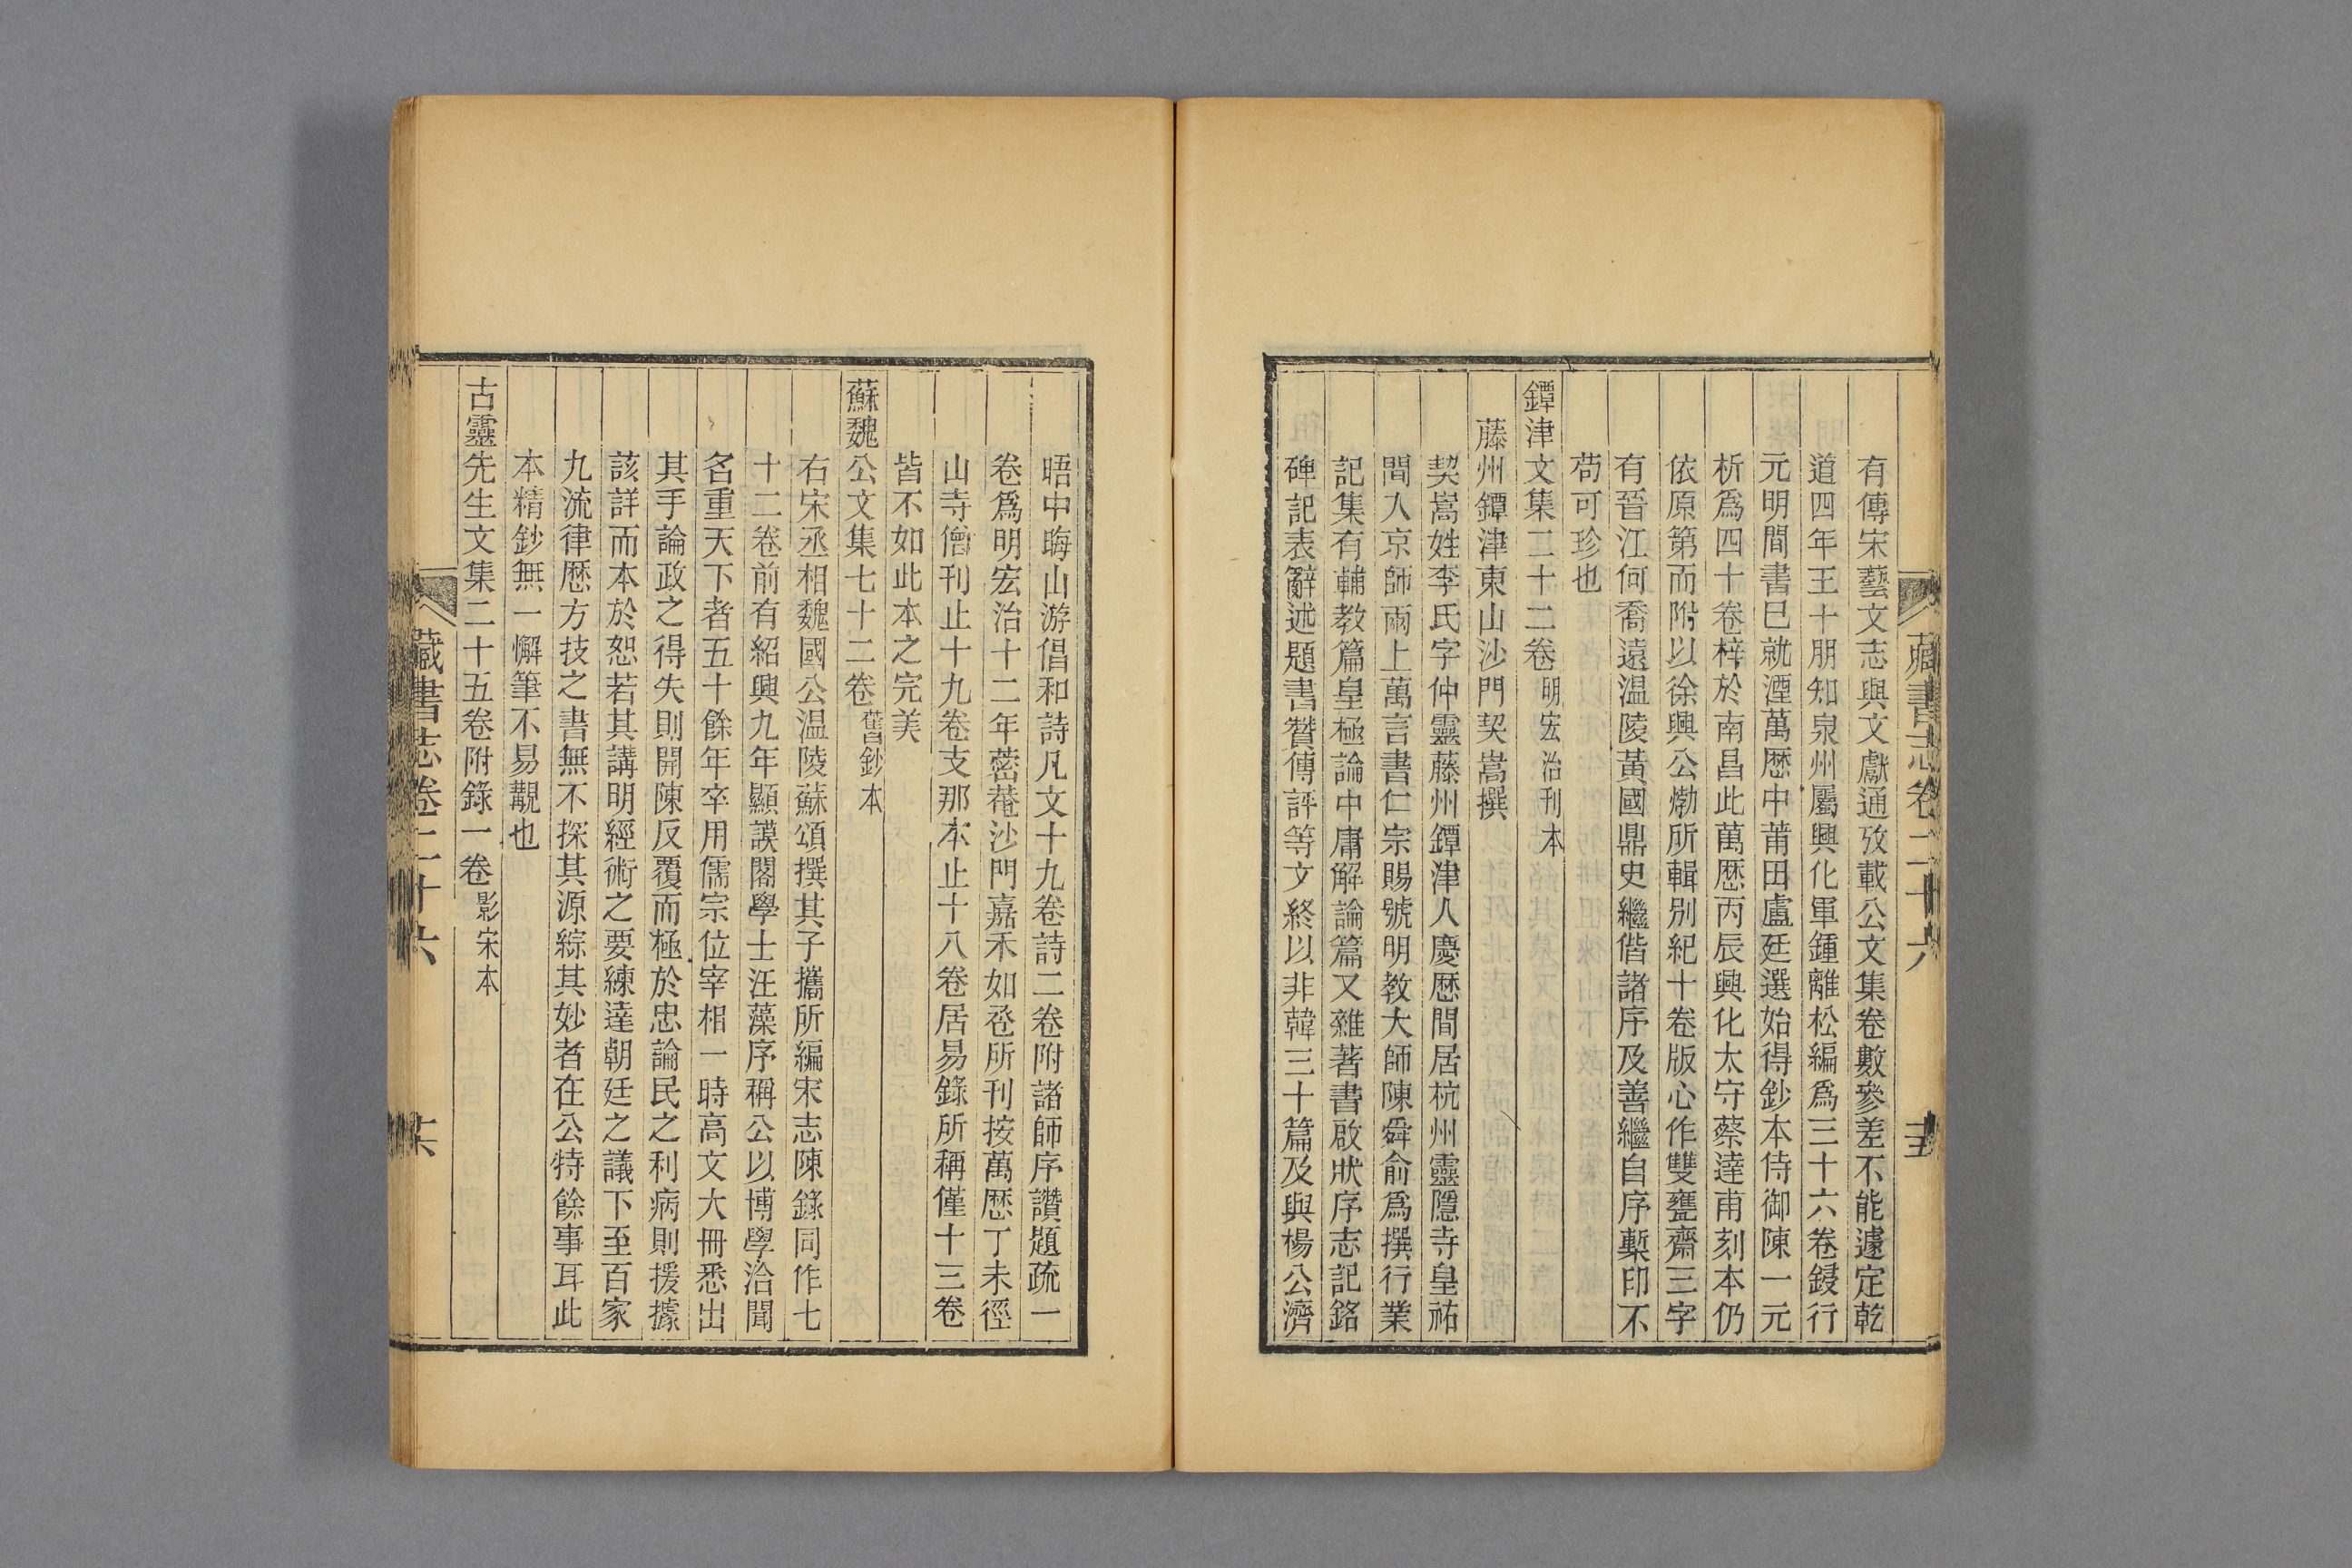 藏書志卷二十六
有傳宋藝文志與文獻通攷載公文集卷數參差不能遽定乾
道四年王十朋知泉州屬興化軍鍾離松編爲三十六卷鋟行
元明間書已就湮萬厯中莆田盧廷選始得鈔本侍御陳一元
析爲四十卷梓於南昌此萬厯丙辰興化太守蔡達甫刻本仍
依原第而附以徐興公㷛所輯別紀十卷版心作雙甕齋三字
有晉江何喬遠温陵黃國鼎史繼偕諸序及善繼自序槧印不
苟可珍也
鐔津文集二十二卷明宏治刊本
藤州鐔津東山沙門契嵩撰
契嵩姓李氏字仲靈藤州鐔津人慶厯間居杭州靈隱寺皇祐
間入京師兩上萬言書仁宗賜號明教大師陳舜俞爲撰行業
記集有輔教篇皇極論中庸解論篇又雜著書啟狀序志記銘
碑記表辭述題書贊傳評等文終以非韓三十篇及與楊公濟
晤中晦山游倡和詩凡文十九卷詩二卷附諸師序讚題疏一
卷爲明宏治十二年蓭菴沙門嘉禾如巹所刊按萬厯丁未徑
山寺僧刊止十九卷支那本止十八卷居易錄所稱僅十三卷
皆不如此本之完美
蘇魏公文集七十二卷舊鈔本
右宋丞相魏國公温陵蘇頌撰其子攜所編宋志陳錄同作七
十二卷前有紹興九年顯謨閣學士汪藻序稱公以博學洽聞
名重天下者五十餘年卒用儒宗位宰相一時高文大冊悉出
其手論政之得失則開陳反覆而極於忠論民之利病則援據
該詳而本於恕若其講明經術之要練達朝廷之議下至百家
九流律厯方技之書無不探其源綜其妙者在公特餘事耳此
本精鈔無一懈筆不易覯也
古靈先生文集二十五卷附錄一卷影宋本
藏書志卷二十六